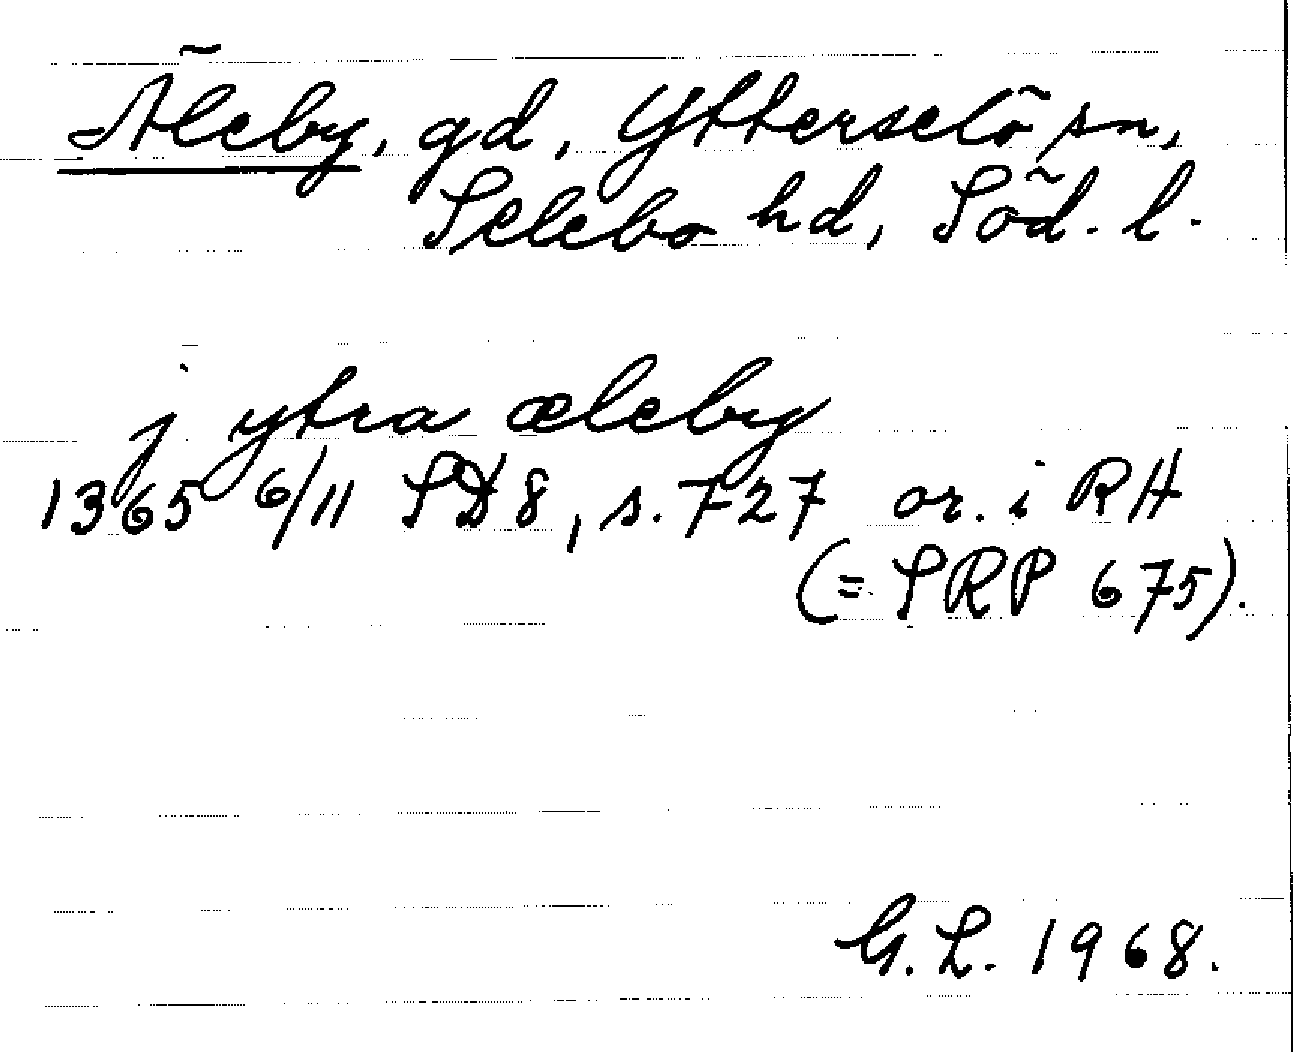 Äleby, gd, Ytterselö sn,
Selebo hd, Söd. l.
j ytra æleby
1365 6/11 SD8, s. 727 or. i RA
(= SRP 675).
G. L. 1968.